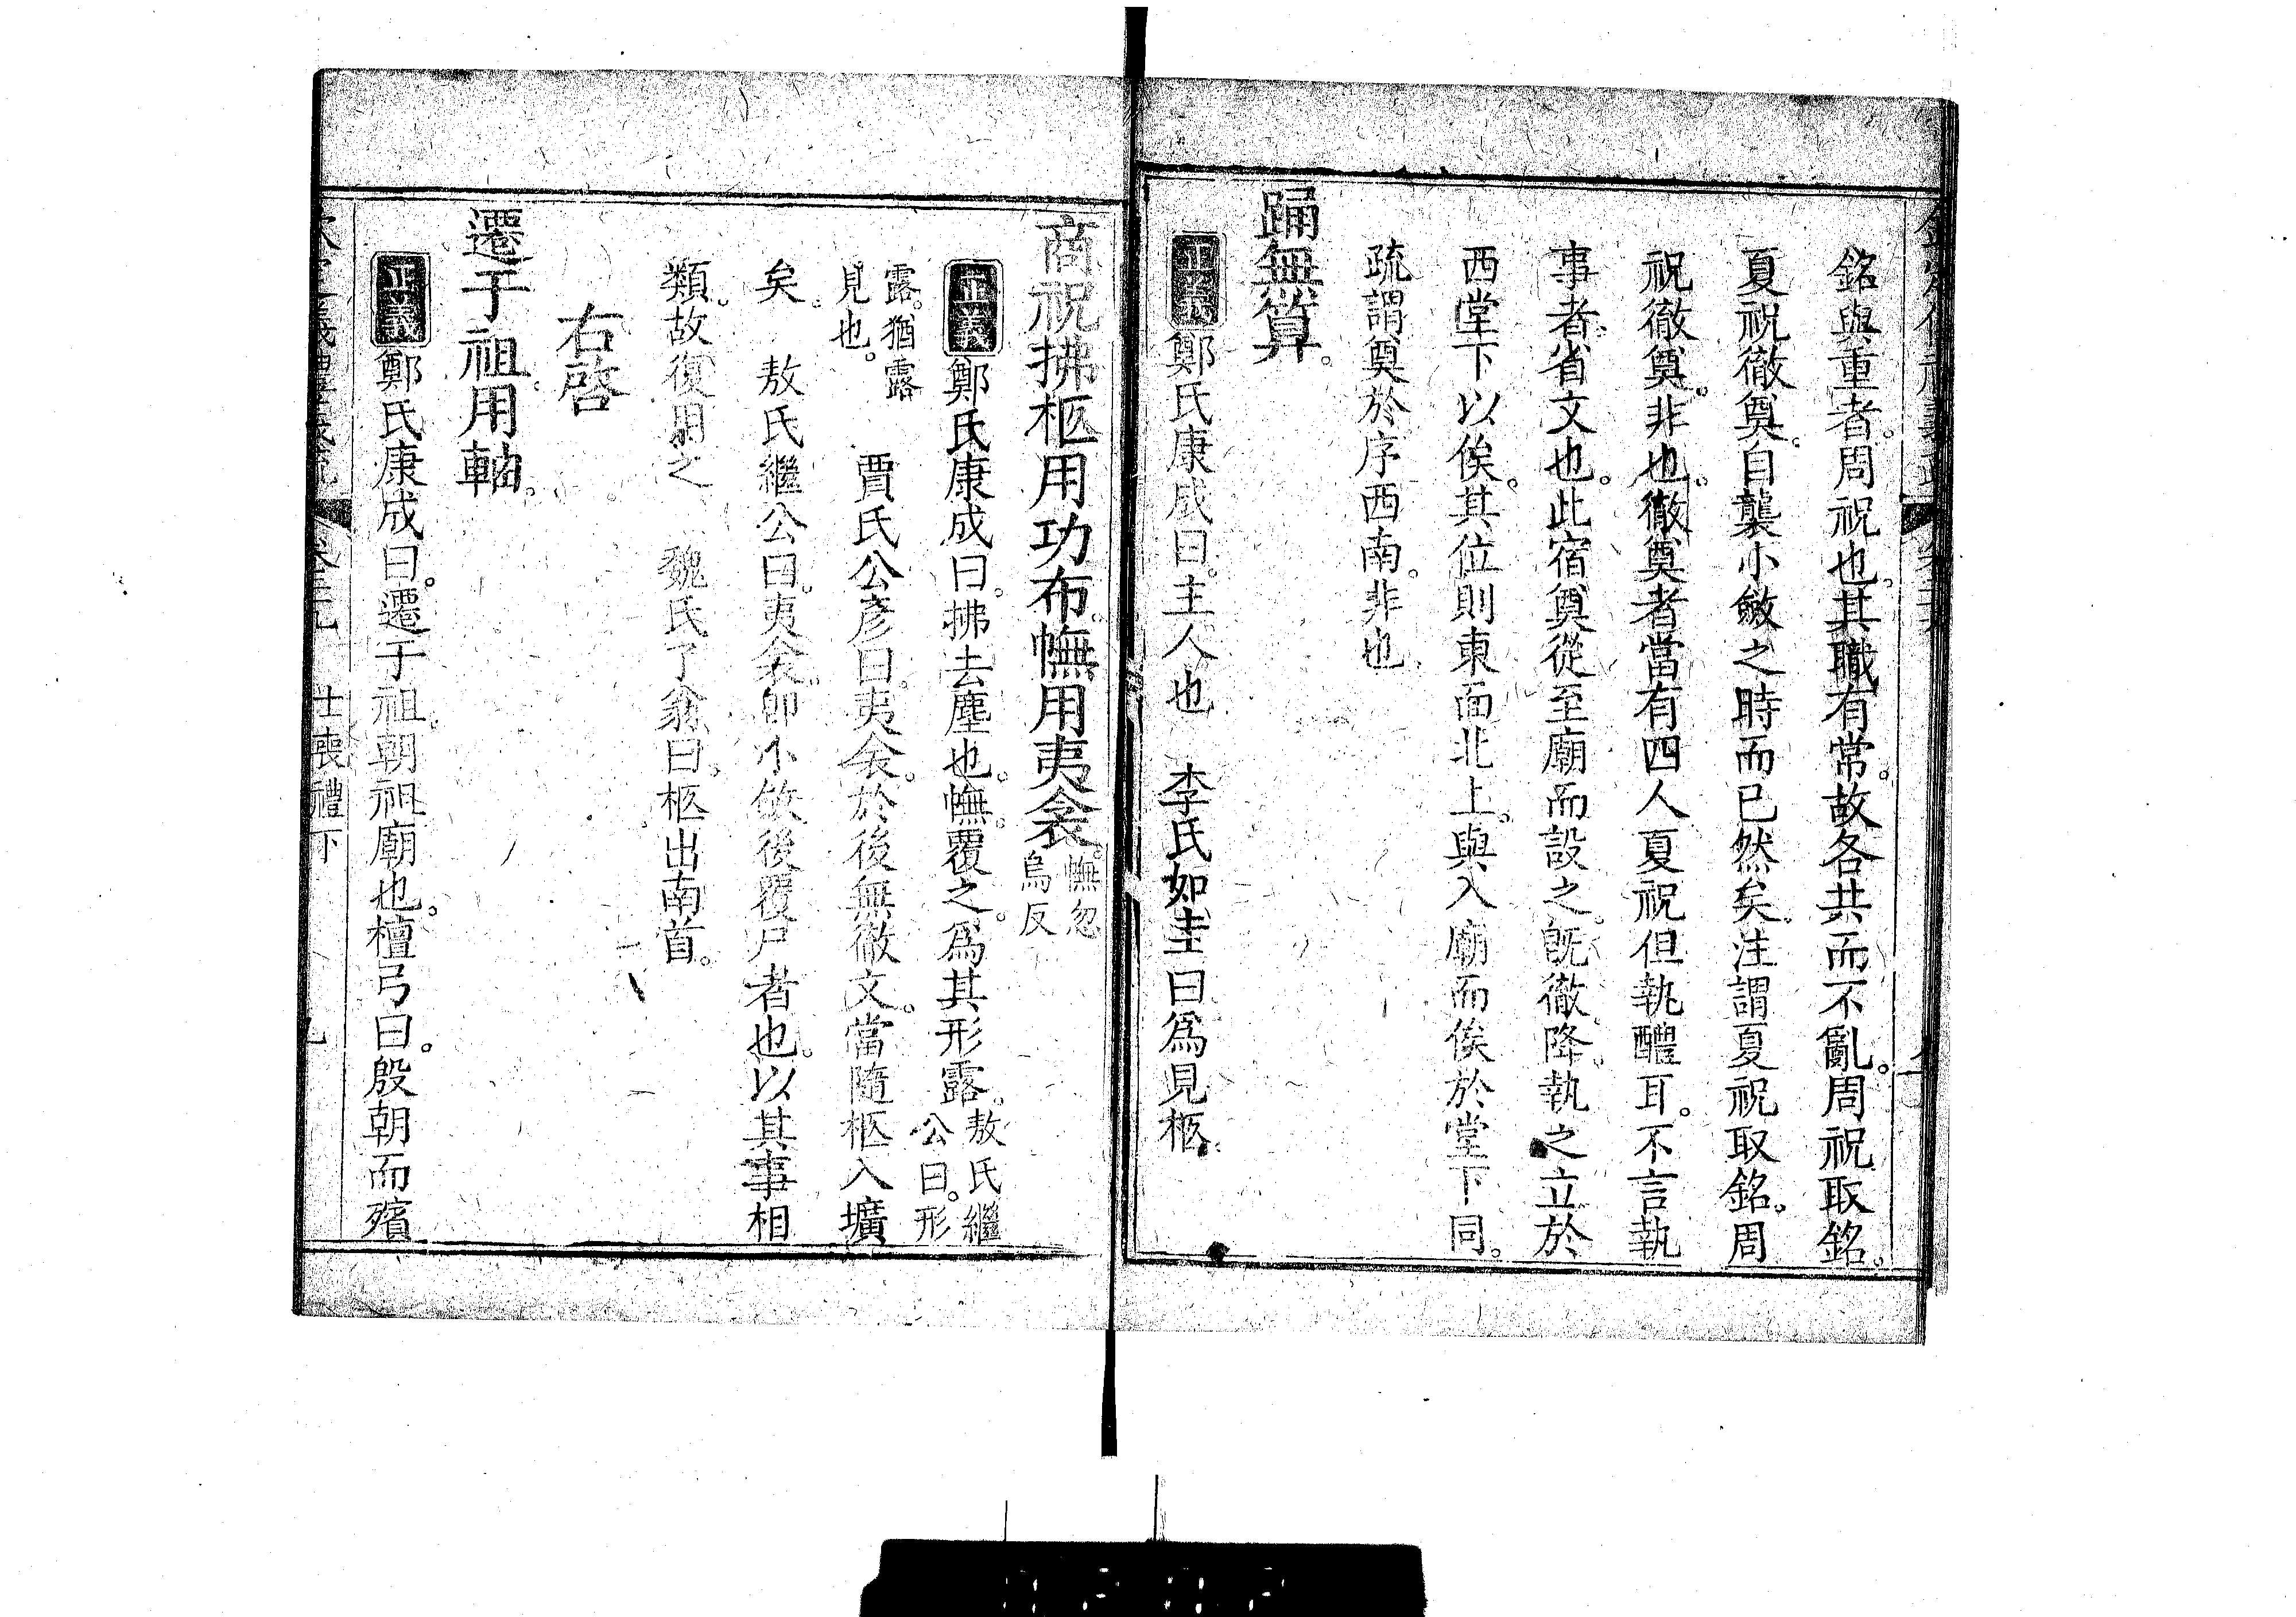 銘與重者。周祝也。其職有常。故各共而不亂。周祝取銘。
夏祝徹奠。自襲小斂之時而已然矣。注謂夏祝取銘。周
祝徹奠。非也。徹奠者當有四人。夏祝但執醴耳。不言執
事者。省文也。此宿奠從至廟而設之。旣徹降。執之立於
西堂下以俟。其位則東面北上。與入廟而俟於堂下同。
疏謂奠於序西南。非也。
踊無算。
正義鄭氏康成曰。主人也 李氏如圭曰爲見柩。
商祝拂柩用功布。幠用夷衾。幠忽
烏反
正義鄭氏康成曰。拂去塵也。幠。覆之。爲其形露。敖氏繼
公曰。形
露。猶露
見也。 賈氏公彥曰。夷衾。於後無徹文。當隨柩入壙
矣。 敖氏繼公曰。夷衾。卽小斂後覆尸者也。以其事相
類。故復用之 魏氏了翁曰。柩出南首。
右啓
遷于祖。用軸。
正義鄭氏康成曰。遷于祖。朝祖廟也。檀弓曰。殷朝而殯
士喪禮下